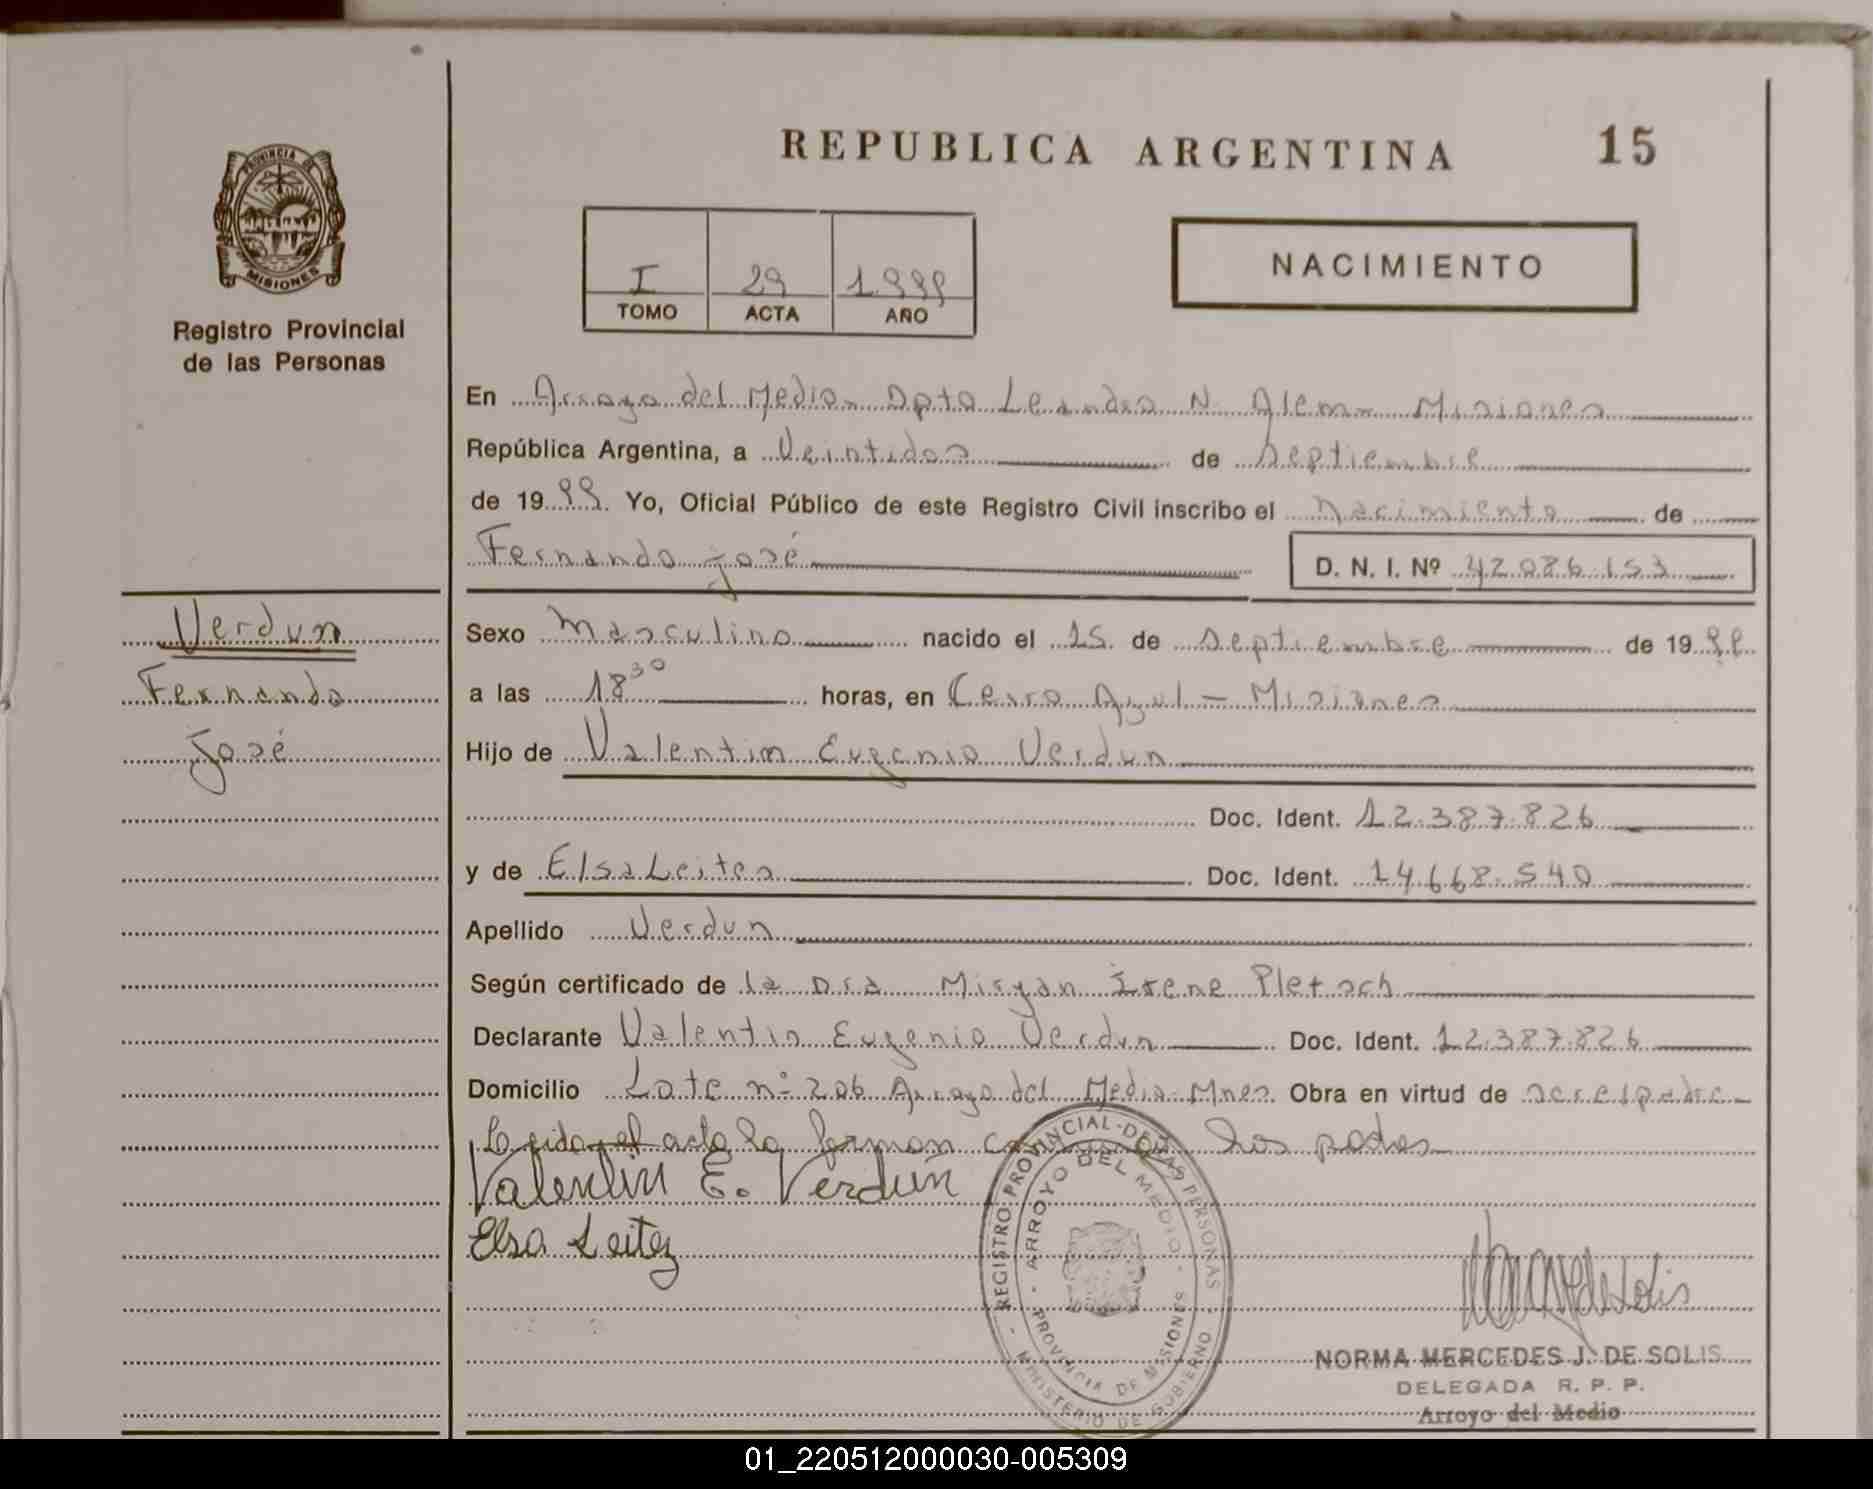 REPUBLICA ARGENTINA 15
PROVINCIA DE
MISIONES
Registro Provincial
de las Personas
I 29 1.999
TOMO ACTA AÑO
NACIMIENTO
En Arroyo del Medio- Dpto Leandro N. Alem- Misiones
República Argentina, a Veintidos de septiembre
de 1999. Yo, Oficial Público de este Registro Civil inscribo el Nacimiento de
Fernando josé D. N. I. Nº 42.086.153
Verdun
Fernando
José
Sexo Masculino nacido el 15 de septiembre de 1999
a las 18³⁰ horas, en Cerro Azul - Misiones
Hijo de Valentin Eugenio Verdun
Doc. Ident. 12.387.826
y de Elsa Leites Doc. Ident. 14.668.540
Apellido Verdun
Según certificado de la Dra Miryan Irene Pletsch
Declarante Valentin Eugenio Verdun Doc. Ident. 12.387.826
Domicilio Lote nº 206 Arroyo del Medio-Mnes. Obra en virtud de ser el padre-
Leida el acta la firman los padres
Valentin E. Verdun
Elsa Leitez
REGISTRO PROVINCIAL DE LAS PERSONAS
ARROYO DEL MEDIO
PROVINCIA DE MISIONES
MINISTERIO DE GOBIERNO
NORMA MERCEDES J. DE SOLIS
DELEGADA R. P. P.
Arroyo del Medio
01_220512000030-005309